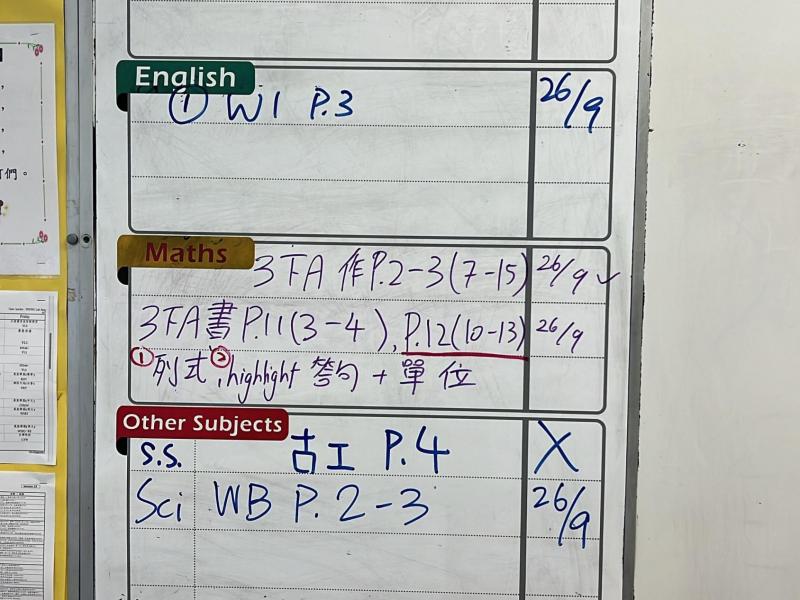 English
① W1 P.3 26/9
Maths
3TA 作P.2-3(7-15) 26/9 ✓
3TA書P.11(3-4), P.12(10-13) 26/9
①列式,②highlight 答句+單位
Other Subjects
S.S. 古工 P.4 X
Sci WB P.2-3 26/9
們。